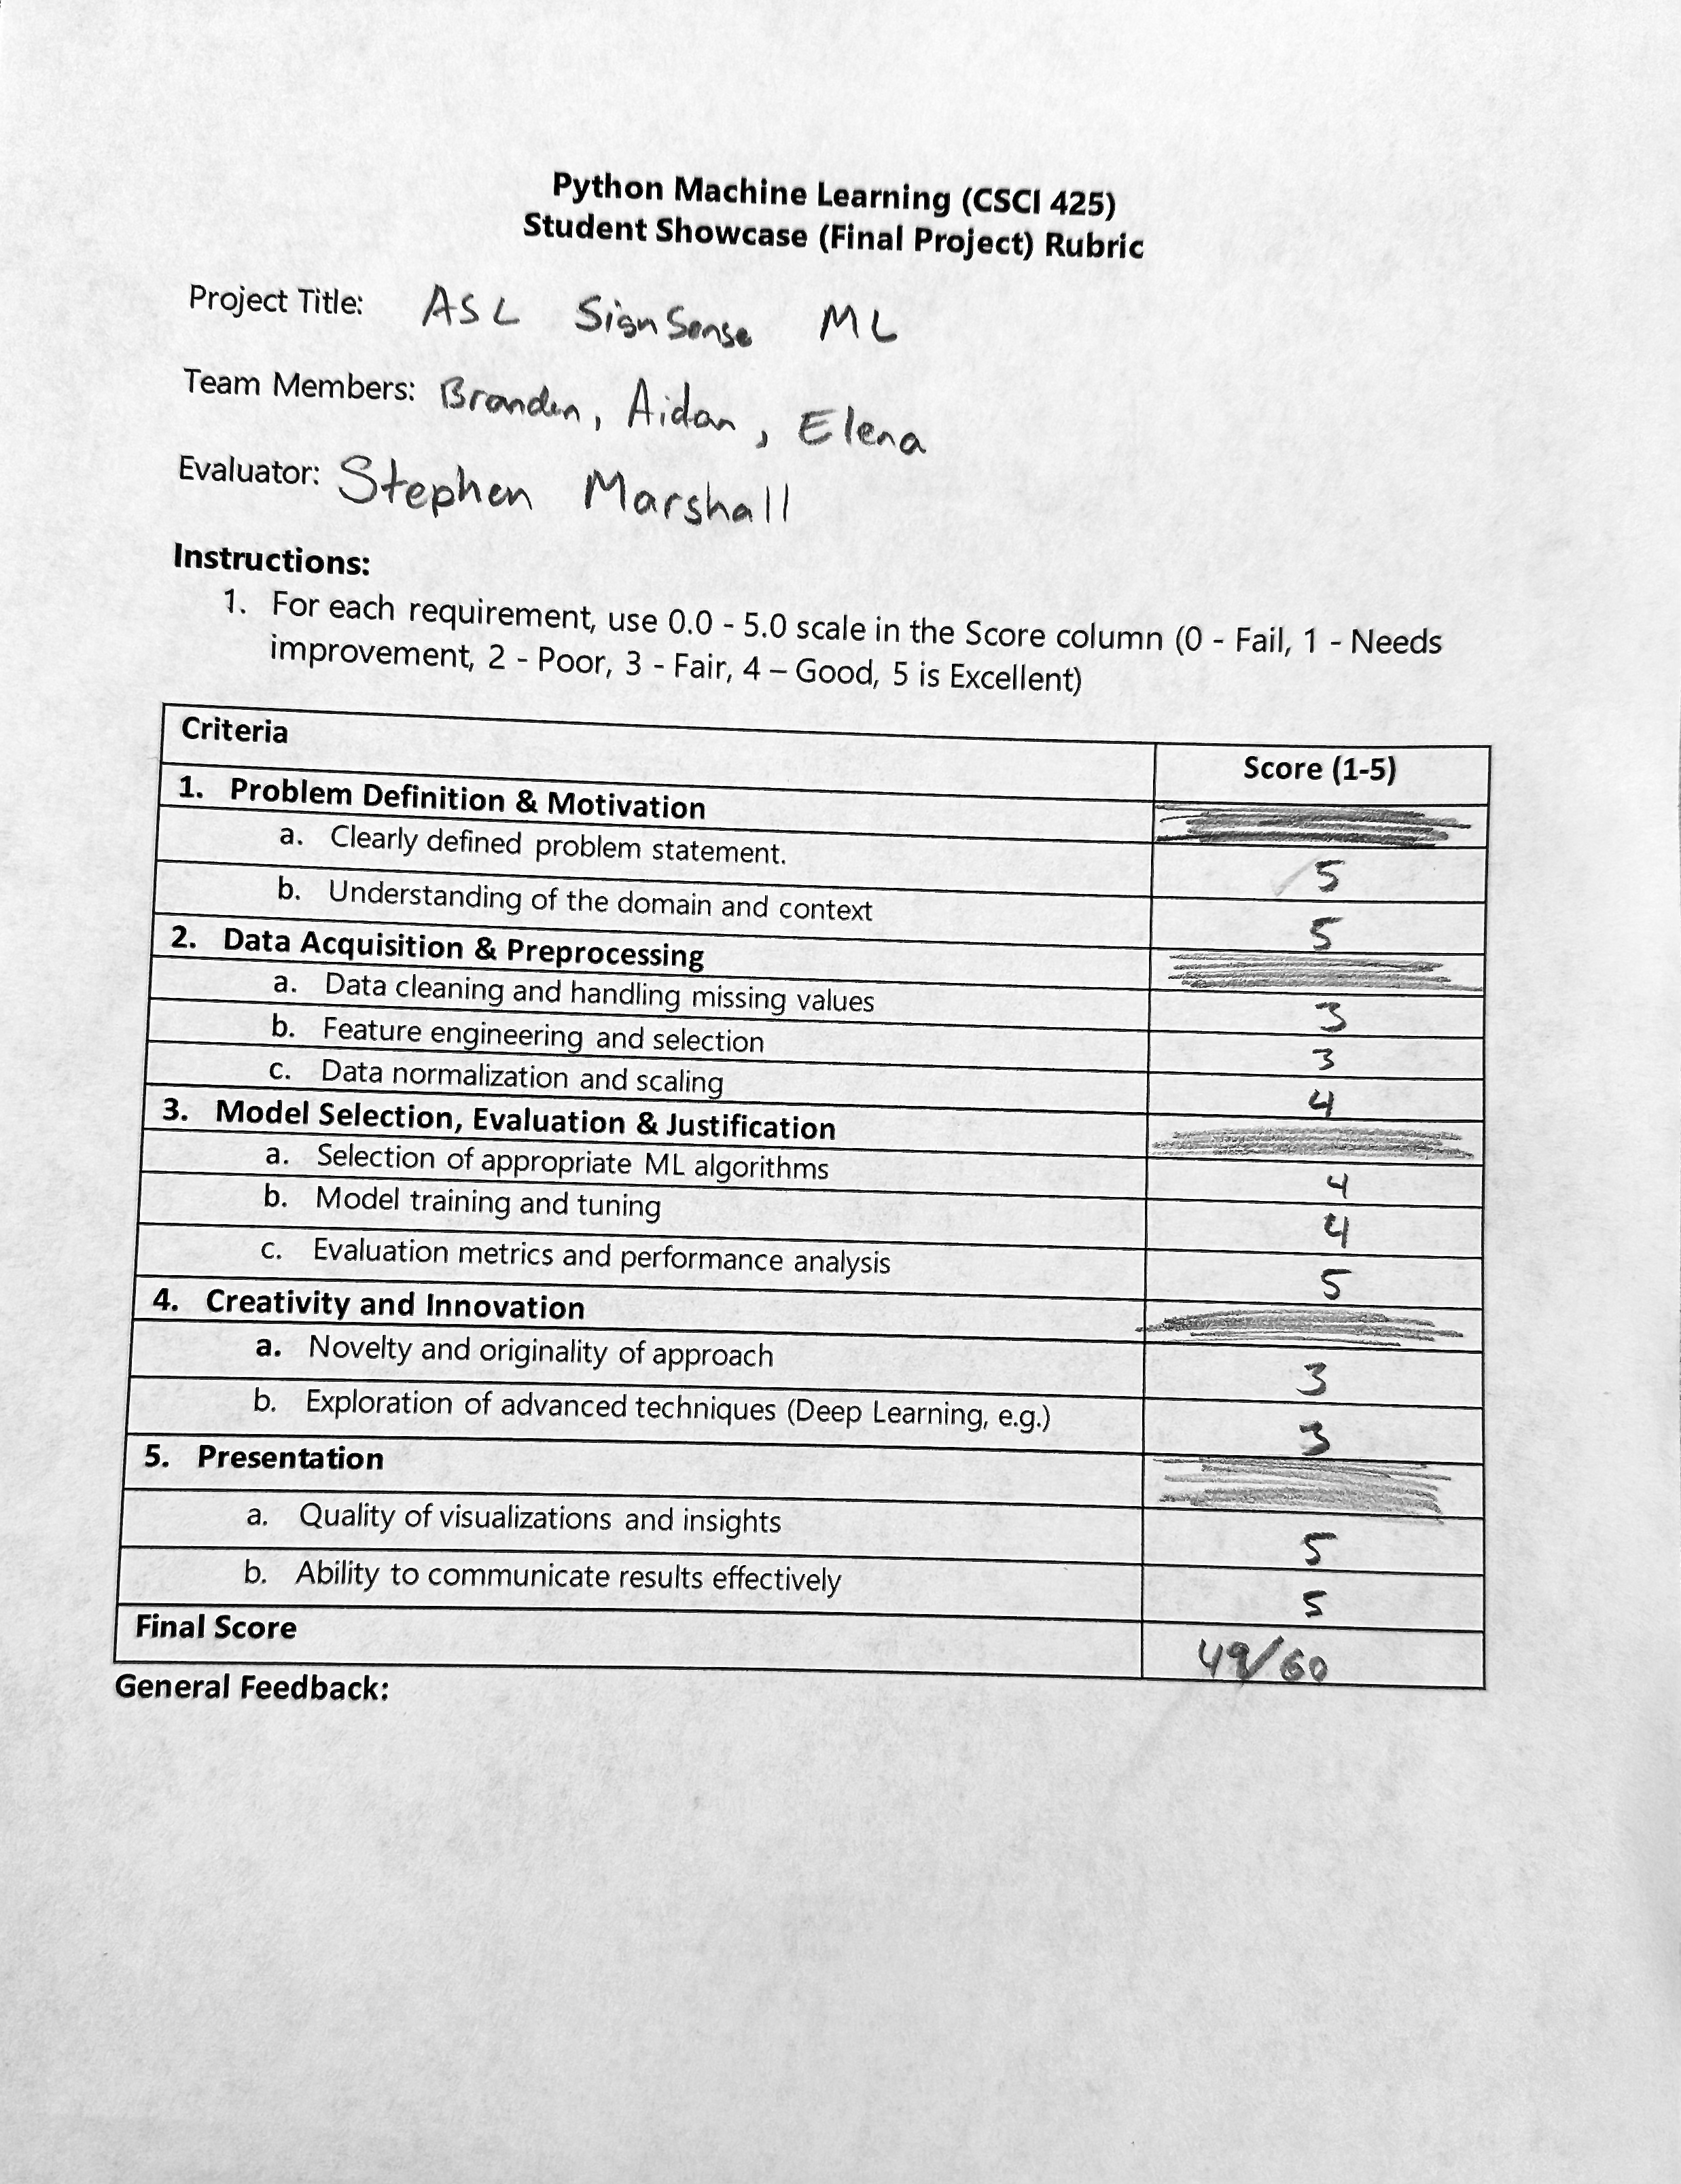 Python Machine Learning (CSCI 425)
Student Showcase (Final Project) Rubric
Project Title: ASL SignSense ML
Team Members: Branden, Aidan, Elena
Evaluator: Stephen Marshall
Instructions:
1. For each requirement, use 0.0 - 5.0 scale in the Score column (0 - Fail, 1 - Needs
improvement, 2 - Poor, 3 - Fair, 4 – Good, 5 is Excellent)
Criteria Score (1-5)
1. Problem Definition & Motivation
a. Clearly defined problem statement. 5
b. Understanding of the domain and context 5
2. Data Acquisition & Preprocessing
a. Data cleaning and handling missing values 3
b. Feature engineering and selection 3
c. Data normalization and scaling 4
3. Model Selection, Evaluation & Justification
a. Selection of appropriate ML algorithms 4
b. Model training and tuning 4
c. Evaluation metrics and performance analysis 5
4. Creativity and Innovation
a. Novelty and originality of approach 3
b. Exploration of advanced techniques (Deep Learning, e.g.) 3
5. Presentation
a. Quality of visualizations and insights 5
b. Ability to communicate results effectively 5
Final Score 49/60
General Feedback: